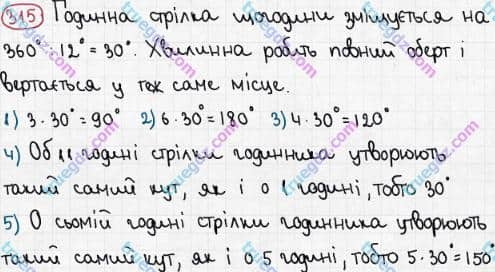 315 Годинна стрілка щогодини зміщується на
360° : 12° = 30°. Хвилинна робить повний оберт і
вертається у теж саме місце.
1) 3·30°=90° 2) 6·30°=180° 3) 4·30°=120°
4) Об 11 годині стрілки годинника утворюють
такий самий кут, як і о 1 годині, тобто 30°
5) О сьомій годині стрілки годинника утворюють
такий самий кут, як і о 5 годині, тобто 5·30°=150